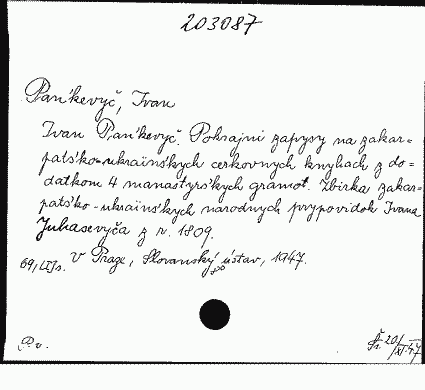 203087
Pan'kevyč, Ivan
Ivan Pan'kevyč. Pokrajni zapysy na zakar=
patśko-ukraïnśkych cerkovnych knyhach z do=
datkom 4 manastyrśkych gramot. Zbirka zakar=
patśko-ukraïnśkych narodnych prypovidok Ivana
Juhasevyča z r. 1809.
V Praze, Slovanský ústav, 1947.
P.v.